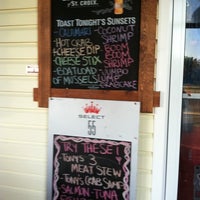 ST. CROIX.
TOAST TONIGHT'S SUNSETS
• CALAMARI
• HOT CRAB
• CHEESE DIP
• CHEESE STIX
• BOATLOAD
OF MUSSELS
• COCONUT
SHRIMP
BOOM
BOOM
SHRIMP
• JUMBO
LUMP
CRABCAKE
SELECT
55
TRY THESE!
TONY'S 3
MEAT STEW
TONY'S CRAB
SALMON TUNA